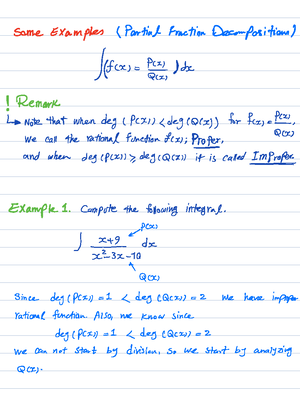 Some Examples (Partial Fraction Decompositions)
∫(f(x) = P(x)/Q(x)) dx
! Remark
Note that when deg(P(x)) < deg(Q(x)) for f(x) = P(x)/Q(x),
we call the rational function f(x); Proper,
and when deg(P(x)) ⩾ deg(Q(x)) it is called Improper
Example 1. Compute the following integral.
P(x)
∫ x+9 / x²-3x-10 dx
Q(x)
Since deg(P(x)) = 1 < deg(Q(x)) = 2 we have improper
rational function. Also, we know since
deg(P(x)) = 1 < deg(Q(x)) = 2
we can not start by division, so we start by analyzing
Q(x).